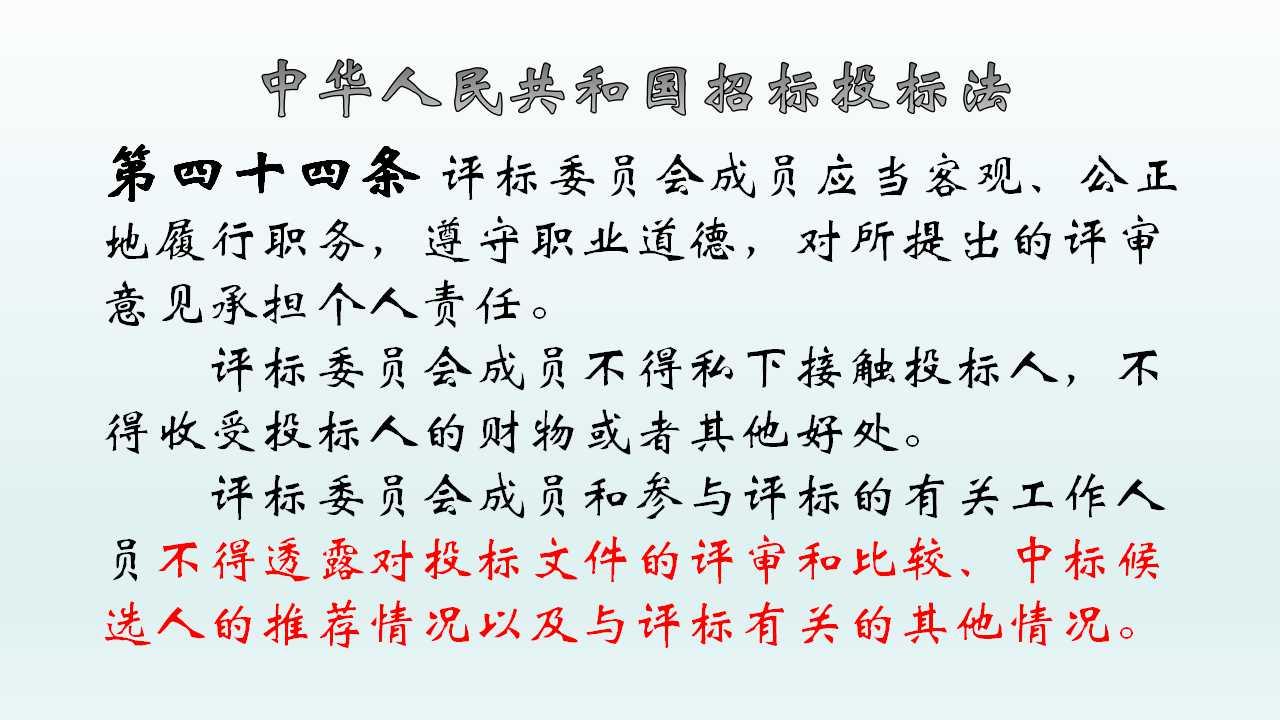 中华人民共和国招标投标法
第四十四条 评标委员会成员应当客观、公正
地履行职务，遵守职业道德，对所提出的评审
意见承担个人责任。
评标委员会成员不得私下接触投标人，不
得收受投标人的财物或者其他好处。
评标委员会成员和参与评标的有关工作人
员不得透露对投标文件的评审和比较、中标候
选人的推荐情况以及与评标有关的其他情况。